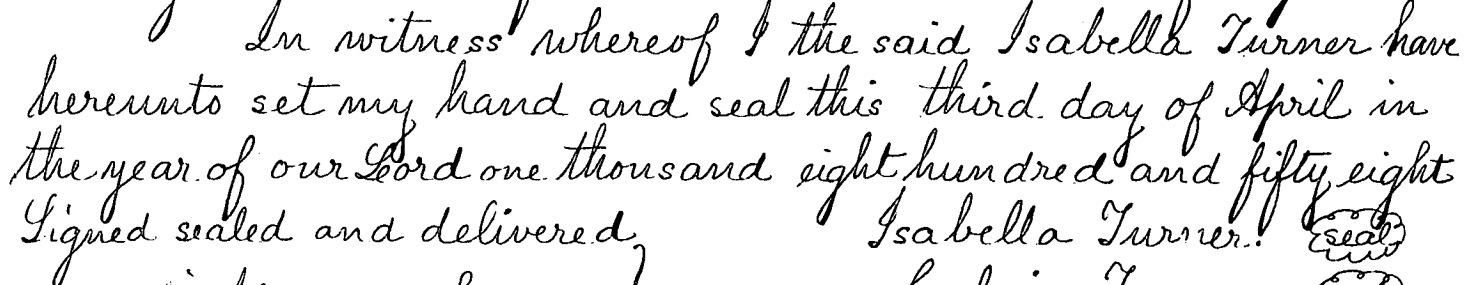 In witness whereof I the said Isabella Turner have
hereunto set my hand and seal this third day of April in
the year of our Lord one thousand eight hundred and fifty eight
Signed sealed and delivered, Isabella Turner. seal